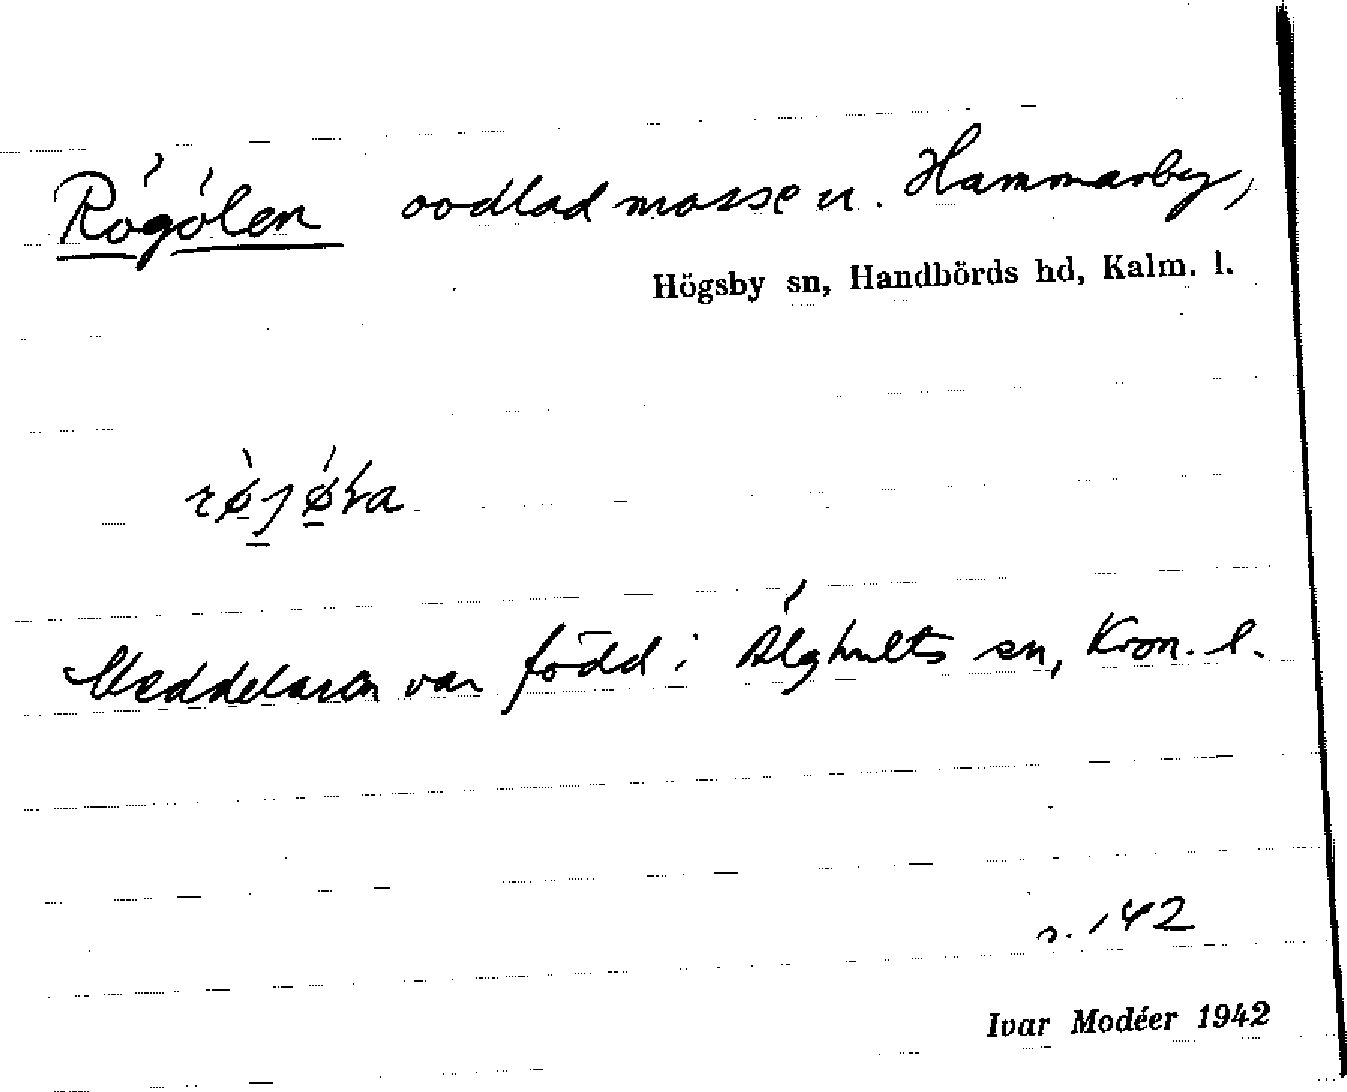 Rögölen oodlad mosse u. Hammarby,
Högsby sn, Handbörds hd, Kalm. l.
Meddelaren var född i Älghults sn, Kron. l.
s. 142
Ivar Modéer 1942